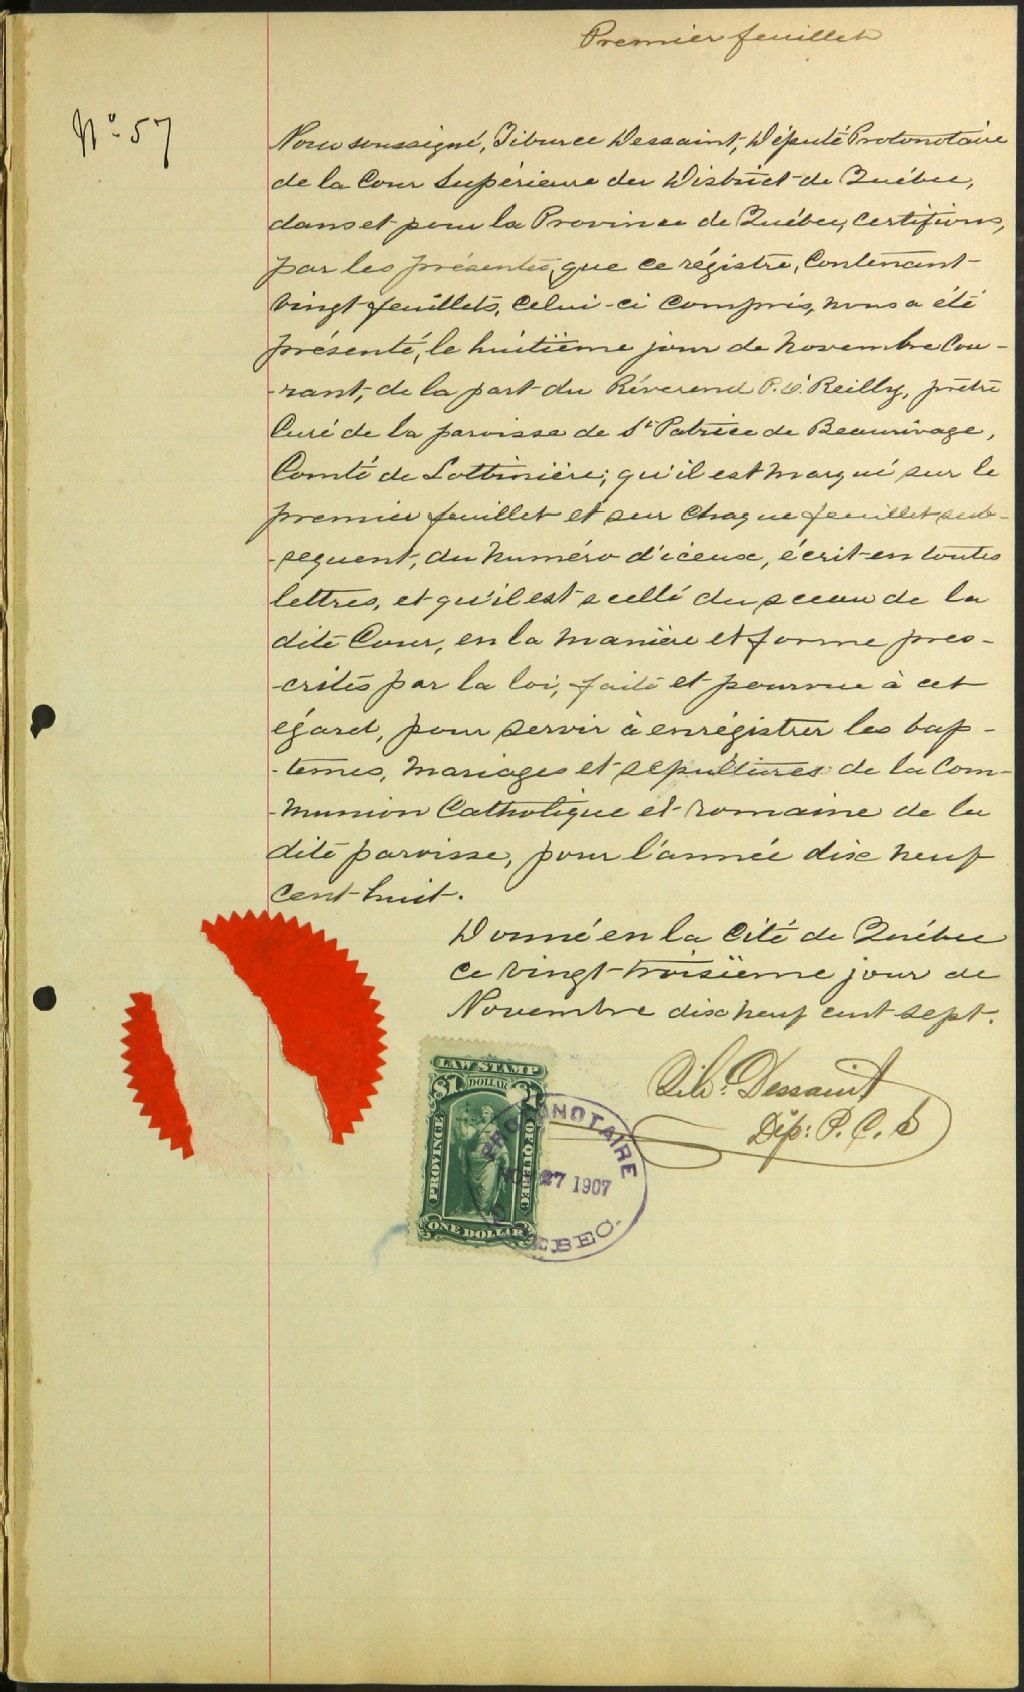 Premier feuillet
No 57
Nous soussigné, Tiburce Dessaint, Député Protonotaire
de la Cour Supérieure du District de Québec,
dans et pour la Province de Québec, Certifions,
par les présentes, que ce régistre, Contenant
vingt feuillets, celui-ci compris, nous a été
présenté, le huitième jour de Novembre Cou-
-rant, de la part du Réverend P. O'Reilly, prêtre
Curé de la paroisse de St Patrice de Beaurivage,
Comté de Lotbinière; qu'il est marqué sur le
premier feuillet et sur chaque feuillet sub-
-sequent, du numéro d'iceux, écrit en toutes
lettres, et qu'il est scellé du sceau de la
dite Cour, en la manière et forme pres-
-crites par la loi, faite et pourvue à cet
égard, pour servir à enrégistrer les bap-
-temes, mariages et sépultures de la Com-
-munion Catholique et romaine de la
dite paroisse, pour l'année dix neuf
cent huit.
Donné en la Cité de Québec
ce vingt-troisième jour de
Novembre dix neuf cent sept.
Tib. Dessaint
Dép: P. C. S
LAW STAMP
$1 DOLLAR $1
PROVINCE OF QUEBEC
ONE DOLLAR
PROTONOTAIRE
27 1907
QUEBEC.